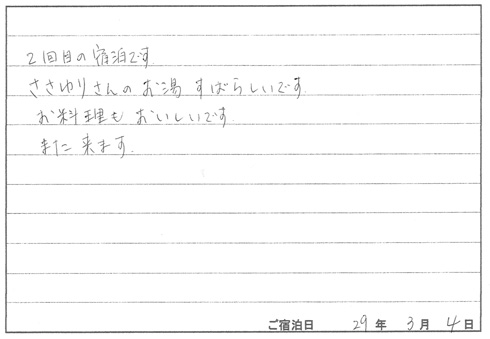 2回目の宿泊です
ささゆりさんのお湯 すばらしいです
お料理も おいしいです
また 来ます.
ご宿泊日 29年 3月 4日